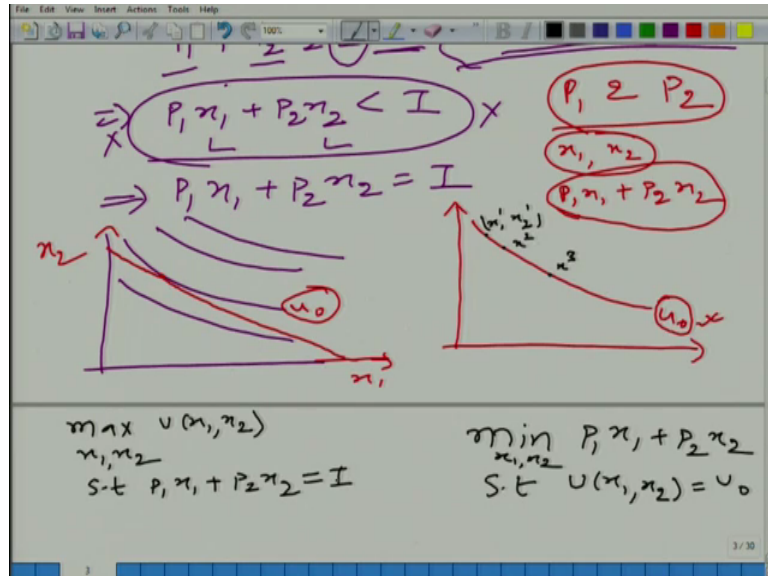 File Edit View Insert Actions Tools Help
100%
B I
⇒ P₁x₁ + P₂x₂ < I X
X
⇒ P₁x₁ + P₂x₂ = I
P₁ & P₂
x₁, x₂
P₁x₁ + P₂x₂
x₂
u₀
x₁
(x₁¹, x₂¹)
x²
x³
u₀
max U(x₁,x₂)
x₁,x₂
s.t P₁x₁ + P₂x₂ = I
min P₁x₁ + P₂x₂
x₁,x₂
s.t U(x₁,x₂) = U₀
3 / 30
3